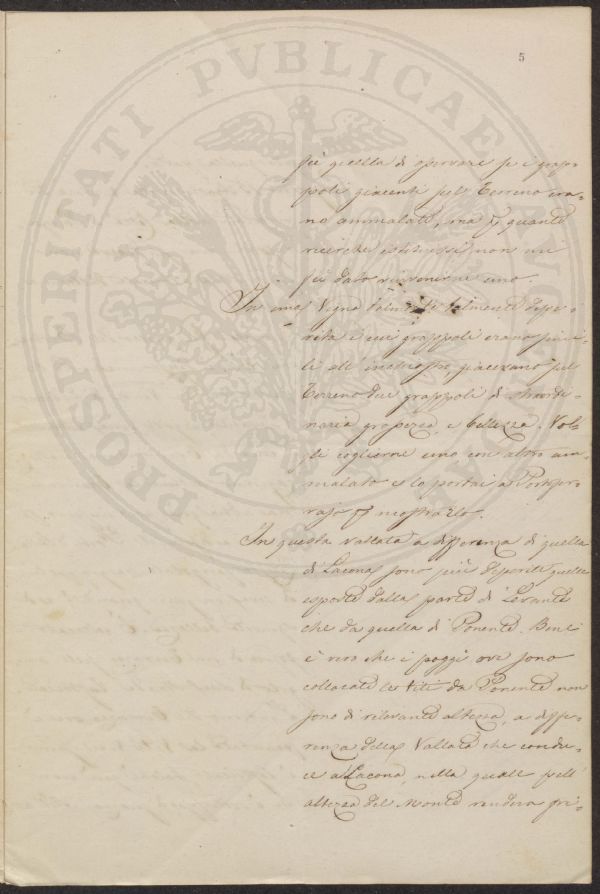 5
PROSPERITATI PVBLICAE
fu quella di osservare se i grap=
poli giacenti sul Terreno era=
no ammalati, ma p. quante
ricerche istituissi non mi
fu dato rinvenirne uno.
In una Vigna talmente depe=
rita i cui grappoli erano simi=
li all' inchiostro, giacevano sul
Terreno due grappoli di straordi=
naria grossezza, e bellezza. Vol=
li coglierne uno con altro am=
malato e lo portai a Portofer=
rajo p. mostrarlo.
In questa Vallata a differenza di quella
di Lacona sono più deperite quelle
esposte dalla parte di Levante
che da quella di Ponente. Bensì
è vero che i poggi ove sono
collocate le Viti da Ponente non
sono di rilevante altezza, a diffe=
renza della Vallata che condu=
ce a Lacona, nella quale pell'
altezza del Monte rendesa pri=